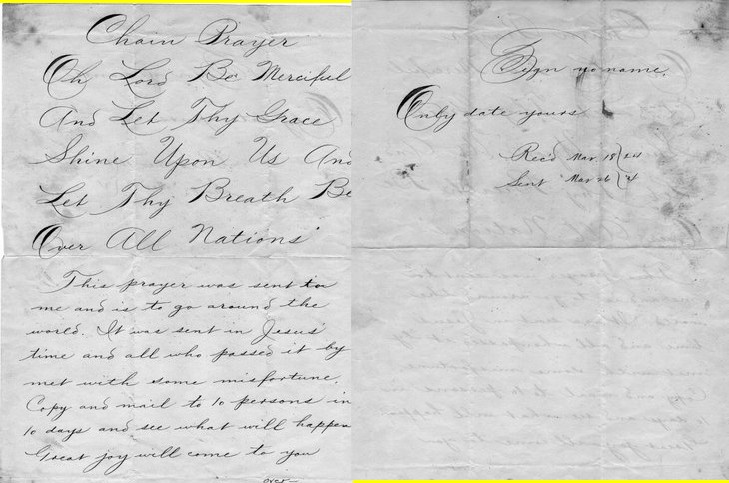 Chain Prayer
Oh Lord Be Merciful
And Let Thy Grace
Shine Upon Us And
Let Thy Breath Be
Over All Nations
This prayer was sent to
me and is to go around the
world. It was sent in Jesus'
time and all who passed it by
met with some misfortune.
Copy and mail to 10 persons in
10 days and see what will happen
Great joy will come to you
over
Sign no name,
Only date yours
Rec'd Mar 18
Sent Mar 26